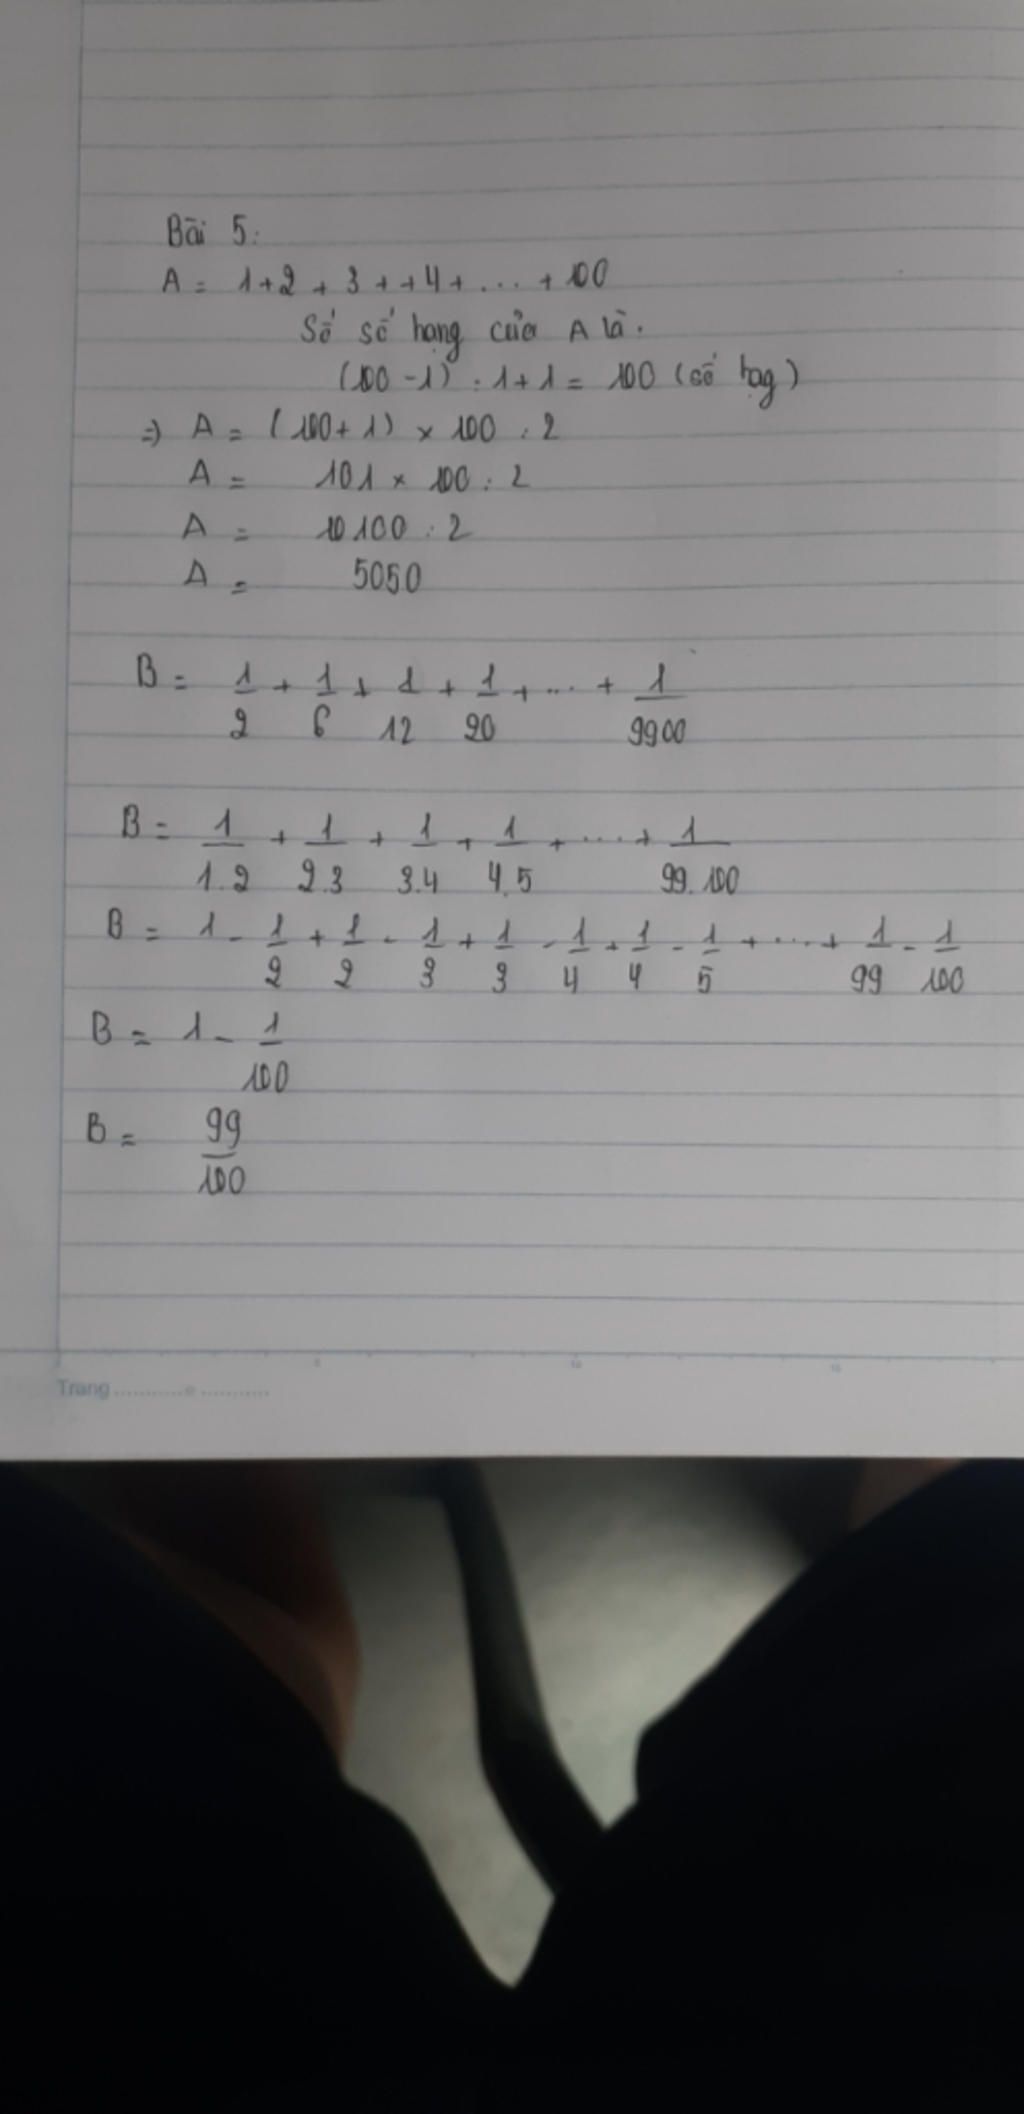 Bài 5:
A = 1+2 + 3 + +4 + ... + 100
Số số hạng của A là:
(100 - 1) : 1 + 1 = 100 (số hạg)
=) A = (100 + 1) × 100 : 2
A = 101 × 100 : 2
A = 10100 : 2
A = 5050
B = 1/2 + 1/6 + 1/12 + 1/20 + ... + 1/9900
B = 1/1.2 + 1/2.3 + 1/3.4 + 1/4.5 + .... + 1/99.100
B = 1 - 1/2 + 1/2 - 1/3 + 1/3 - 1/4 + 1/4 - 1/5 + .... + 1/99 - 1/100
B = 1 - 1/100
B = 99/100
Trang